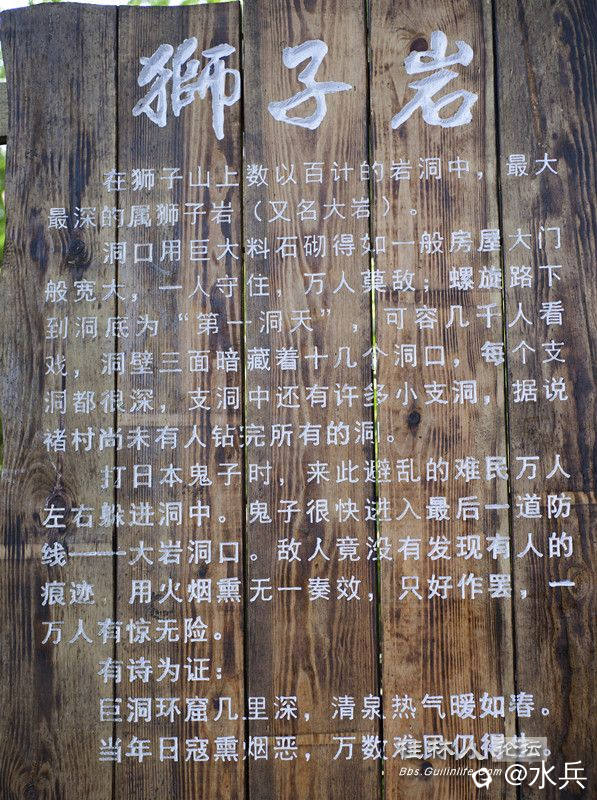 狮子岩
在狮子山上数以百计的岩洞中，最大
最深的属狮子岩（又名大岩）。
洞口用巨大料石砌得如一般房屋大门
般宽大，一人守住，万人莫敌；螺旋路下
到洞底为“第一洞天”，可容几千人看
戏，洞壁三面暗藏着十几个洞口，每个支
洞都很深，支洞中还有许多小支洞，据说
褚村尚未有人钻完所有的洞。
打日本鬼子时，来此避乱的难民万人
左右躲进洞中。鬼子很快进入最后一道防
线——大岩洞口。敌人竟没有发现有人的
痕迹　用火烟熏无一奏效，只好作罢，一
万人有惊无险。
有诗为证：
巨洞环窟几里深，清泉热气暖如春。
当年日寇熏烟恶，万数难民仍得。
桂林人论坛
Bbs.Guilinlife.Com
@水兵